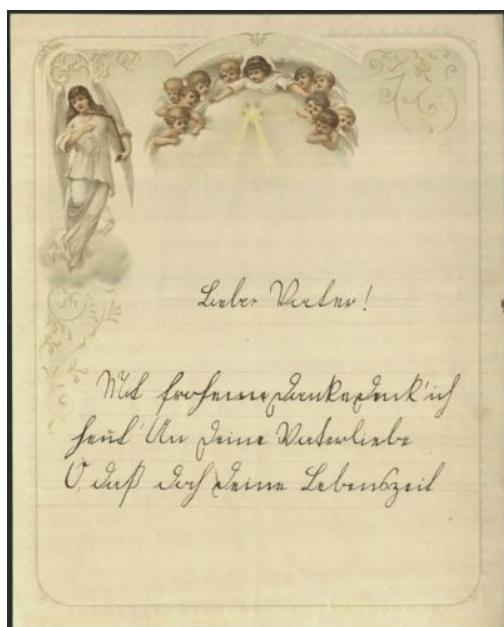 Lieber Vater!
Mit frohem Danke denk' ich
heut' An Deine Vaterliebe
O, daß doch Deine Lebenszeit